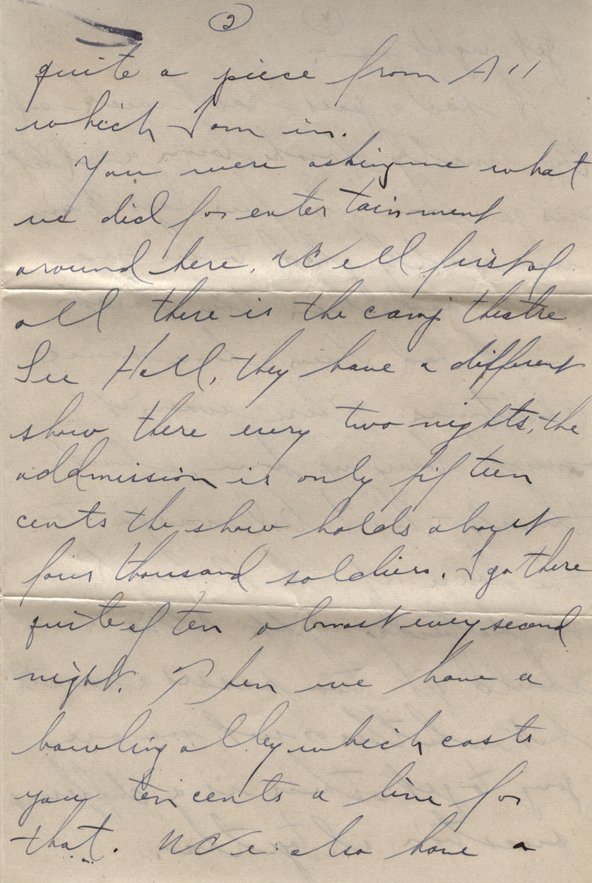 2
quite a piece from A 11
which I am in.
You were asking me what
we did for entertainment
around here. Well first of
all there is the camp theatre
Lee Hall, they have a different
show there every two nights, the
addmission is only fifteen
cents the show holds about
four thousand soldiers. I go there
quite often almost every second
night. Then we have a
bowling alley which costs
you ten cents a line for
that. We also have a